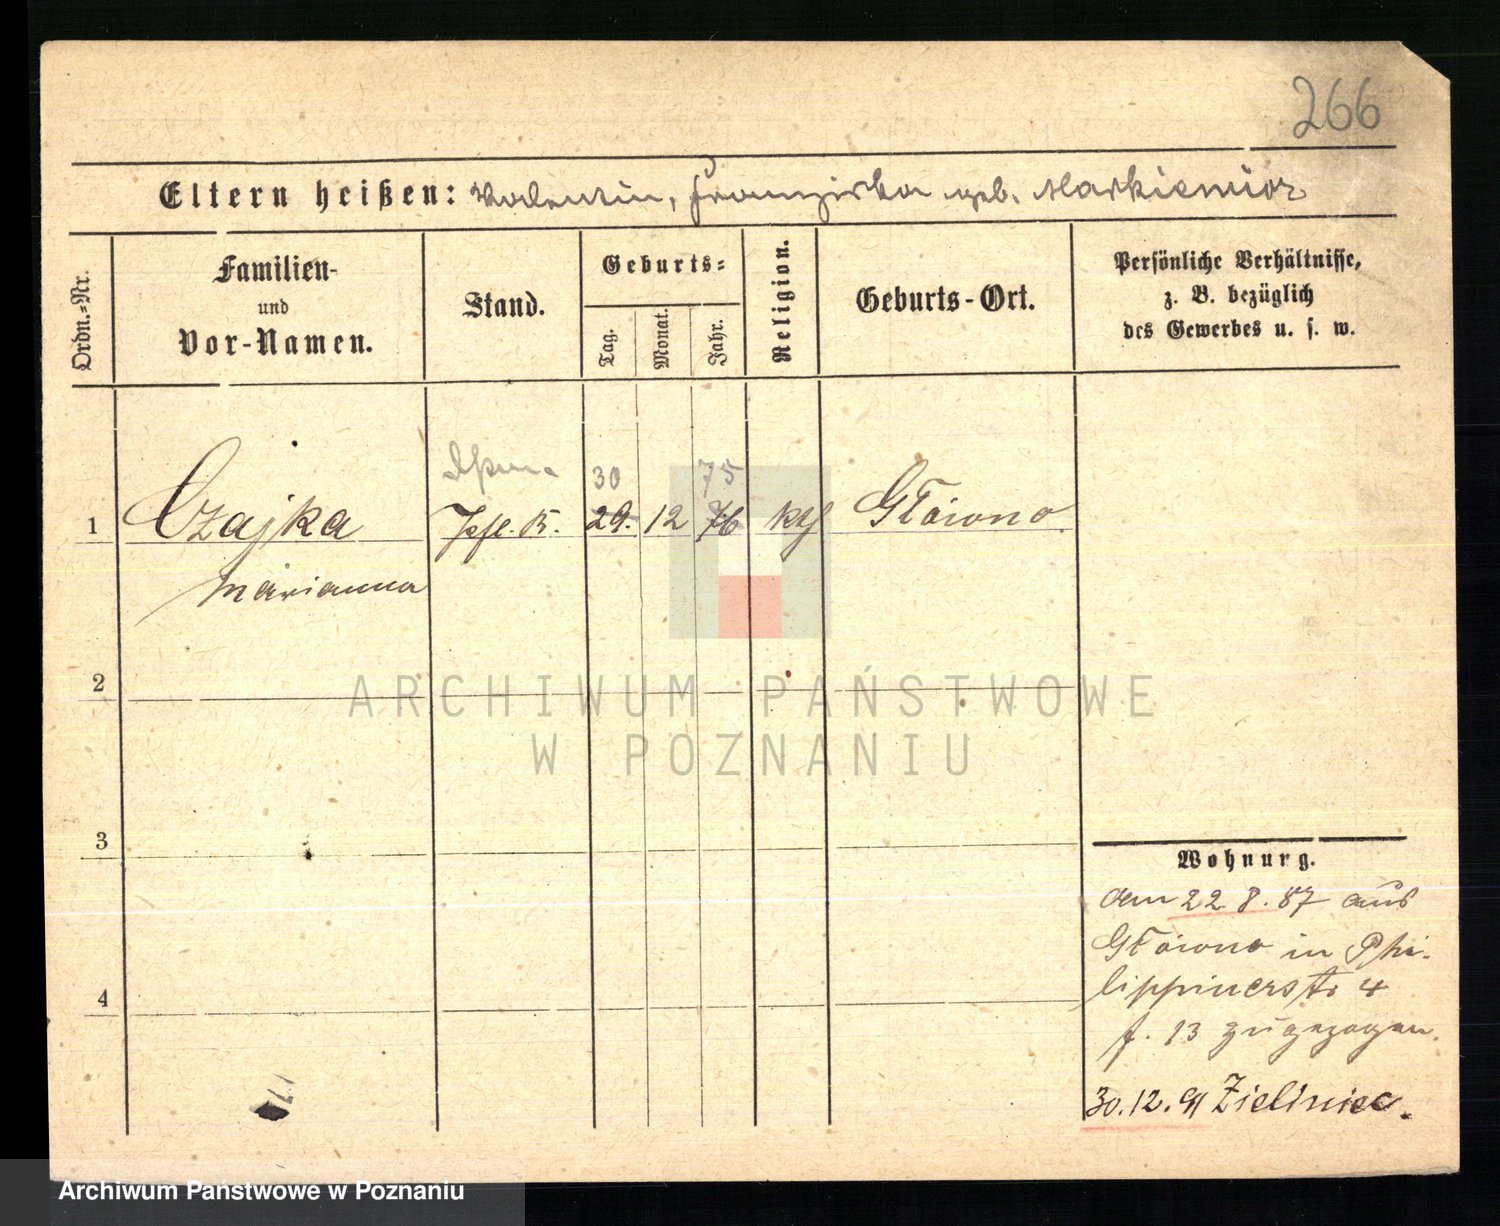 266
Eltern heißen: Valentin, Franziska geb. Markiewicz
Ordn.-Nr.
Familien-
und
Vor-Namen.
Stand.
Geburts-
Tag.
Monat.
Jahr.
Religion.
Geburts-Ort.
Persönliche Verhältnisse,
z. B. bezüglich
des Gewerbes u. s. w.
30 75
1 Czajka 29. 12 76 kth Główno
Marianna
2
ARCHIWUM PAŃSTWOWE
W POZNANIU
3
Wohnung.
dem 22. 8. 87 aus
Główno in Phi-
lippinerstr 4
4
f. 13 zugezogen.
30. 12. 91 Zieliniec.
Archiwum Państwowe w Poznaniu